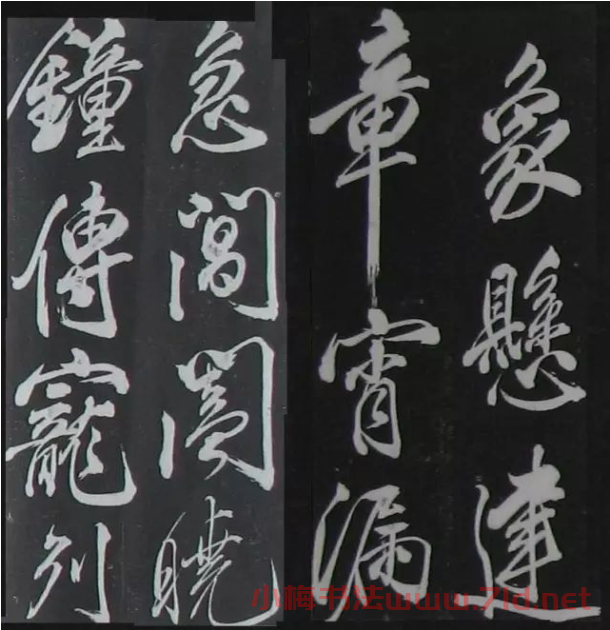 象懸建
章宵漏
急閶闔曉
鐘傳寵列
小梅书法www.7ld.net